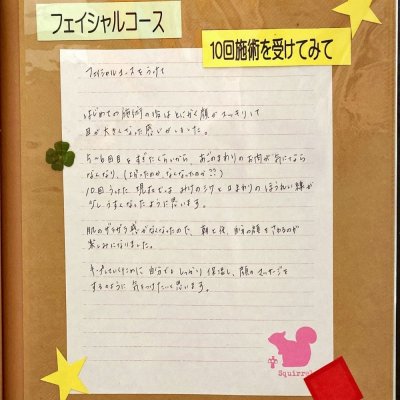 フェイシャルコース
10回施術を受けてみて
フェイシャルコースをうけて
はじめての施術の後はとにかく顔がスッキリして
目が大きくなった思いがしました。
5〜6回目をすぎたくらいから あごのまわりのお肉が気にならなく
なり、(減ったのか、なくなったのか??)
10回うけた現在では みけのシワと口まわりのほうれい線が
少しうすくなったように思います。
肌のザラザラ感がなくなったので、朝と夜、自分の顔をさわるのが
楽しみになりました。
キープしていくために自分でも しっかり保湿し、顔のマッサージを
するように 気をつけたいと思います。
Squirrel